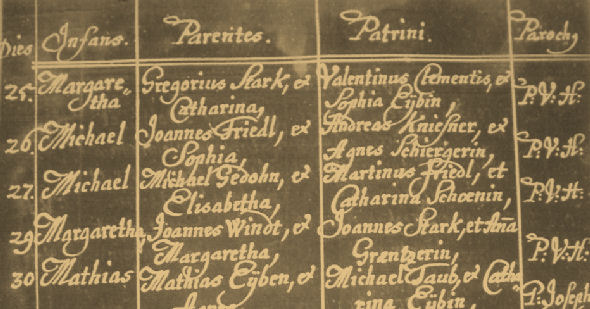 Dies Infans. Parentes. Patrini. Parochȝ
25. Margare„ Gregorius Stark, et Valentinus Clementis, et P: V: H:
tha Catharina, Sophia Eÿbin,
26. Michael Joannes Friedl, et Andreas Kniesner, et P: V: H:
Sophia, Agnes Schiergerin,
27. Michael Michael Gedohn, et Martinus Friedl, et P: V: H:
Elisabetha, Catharina Schoenin,
29 Margaretha Joannes Winot, et Joannes Stark, et Aña P: V: H:
Margaretha, Grantzerin,
30 Mathias Mathias Eÿben, et Michael Taub, et Catha P: Joseph
rina Eÿbin,